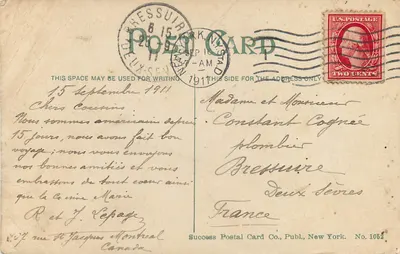 POST CARD
BRESSUIRE
DEUX-SÈVRES
SEP
AM
1911
U.S. POSTAGE
TWO CENTS
THIS SPACE MAY BE USED FOR WRITING
THIS SIDE FOR THE ADDRESS ONLY
15 Septembre 1911
Chers Cousins,
Nous sommes américains depuis
15 jours, nous avons fait bon
voyage; nous vous envoyons
nos bonnes amitiés et vous
embrassons de tout cœur ainsi
que la Cousine Marie
R et J. Lepage
rue St Jacques Montreal
Canada
Madame et Monsieur
Constant Cognée
plombier
Bressuire
Deux Sèvres
France
Success Postal Card Co., Publ., New York. No.